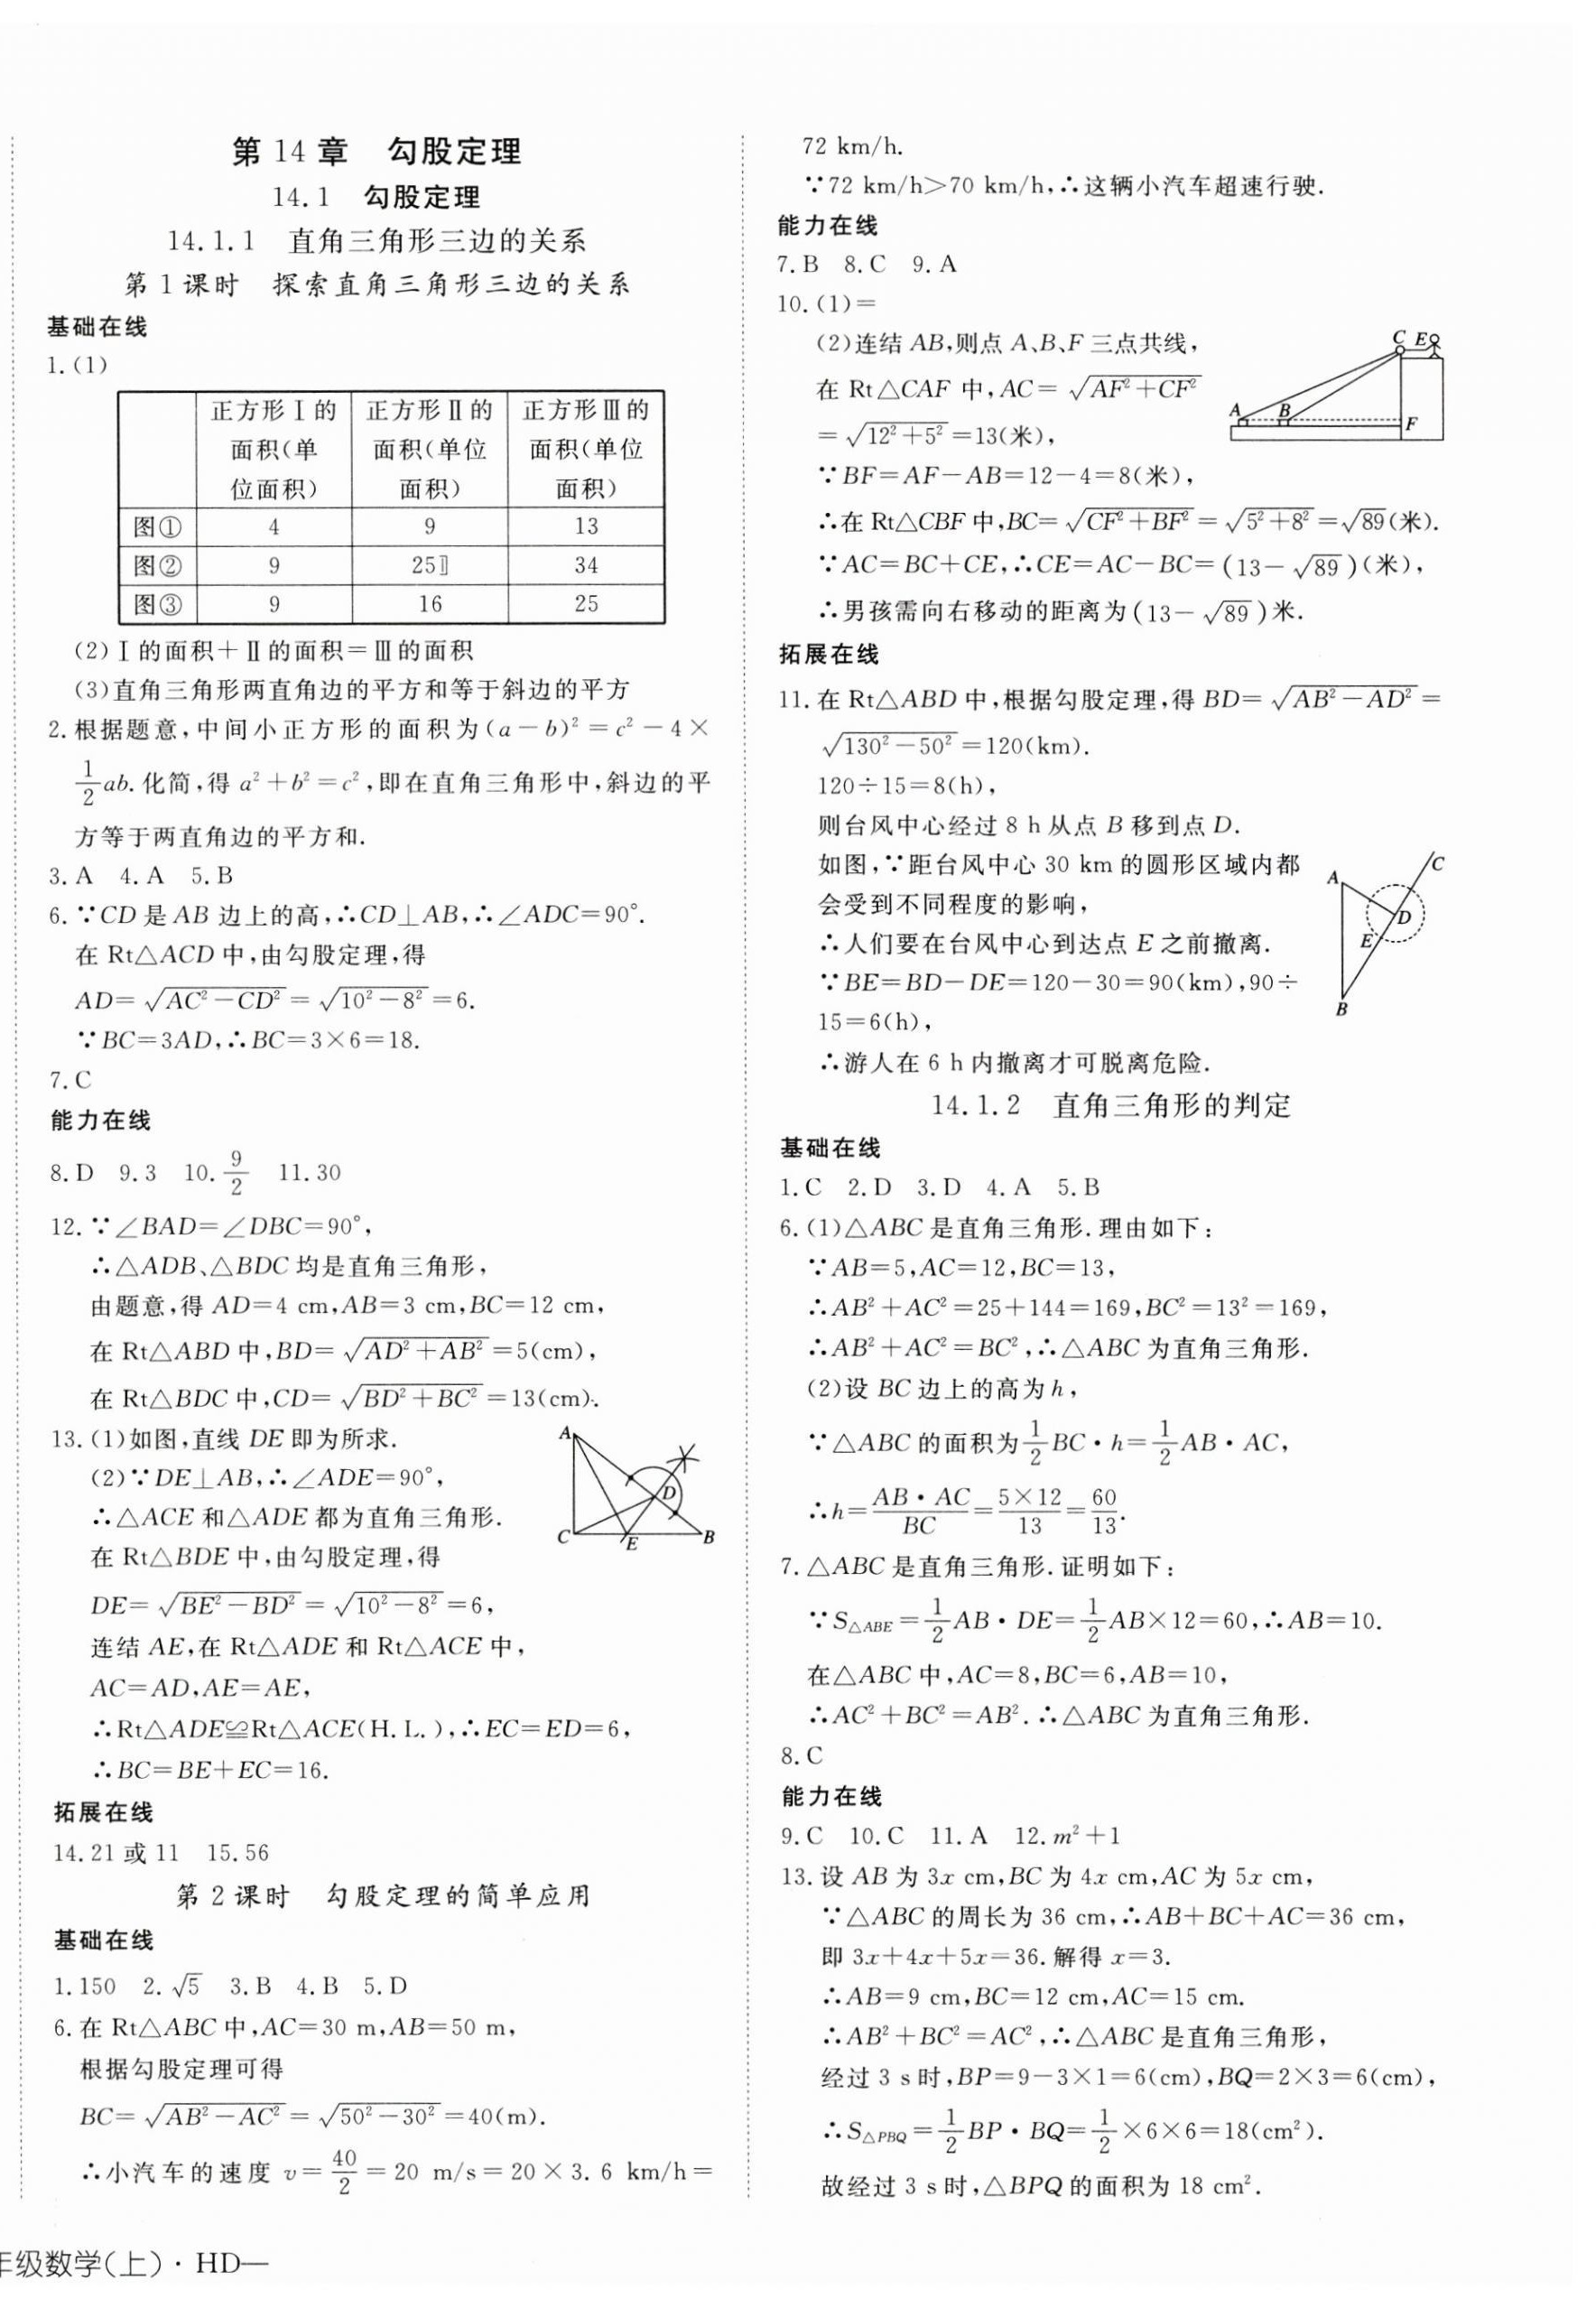 第 14 章 勾股定理
14.1 勾股定理
14.1.1 直角三角形三边的关系
第 1 课时 探索直角三角形三边的关系
基础在线
1.(1)
正方形Ⅰ的面积(单位面积) 正方形Ⅱ的面积(单位面积) 正方形Ⅲ的面积(单位面积)
图① 4 9 13
图② 9 25 34
图③ 9 16 25
(2)Ⅰ的面积+Ⅱ的面积=Ⅲ的面积
(3)直角三角形两直角边的平方和等于斜边的平方
2.根据题意,中间小正方形的面积为(a-b)²=c²-4×
1/2 ab.化简,得 a²+b²=c²,即在直角三角形中,斜边的平
方等于两直角边的平方和.
3.A 4.A 5.B
6.∵CD 是 AB 边上的高,∴CD⊥AB,∴∠ADC=90°.
在 Rt△ACD 中,由勾股定理,得
AD=√(AC²-CD²)=√(10²-8²)=6.
∵BC=3AD,∴BC=3×6=18.
7.C
能力在线
8.D 9.3 10.9/2 11.30
12.∵∠BAD=∠DBC=90°,
∴△ADB、△BDC 均是直角三角形,
由题意,得 AD=4 cm,AB=3 cm,BC=12 cm,
在 Rt△ABD 中,BD=√(AD²+AB²)=5(cm),
在 Rt△BDC 中,CD=√(BD²+BC²)=13(cm).
13.(1)如图,直线 DE 即为所求.
(2)∵DE⊥AB,∴∠ADE=90°,
∴△ACE 和△ADE 都为直角三角形.
在 Rt△BDE 中,由勾股定理,得
DE=√(BE²-BD²)=√(10²-8²)=6,
连结 AE,在 Rt△ADE 和 Rt△ACE 中,
AC=AD,AE=AE,
∴Rt△ADE≌Rt△ACE(H.L.),∴EC=ED=6,
∴BC=BE+EC=16.
A
D
C
E
B
拓展在线
14.21 或 11 15.56
第 2 课时 勾股定理的简单应用
基础在线
1.150 2.√5 3.B 4.B 5.D
6.在 Rt△ABC 中,AC=30 m,AB=50 m,
根据勾股定理可得
BC=√(AB²-AC²)=√(50²-30²)=40(m).
∴小汽车的速度 v=40/2=20 m/s=20×3.6 km/h=
72 km/h.
∵72 km/h>70 km/h,∴这辆小汽车超速行驶.
能力在线
7.B 8.C 9.A
10.(1)=
(2)连结 AB,则点 A、B、F 三点共线,
在 Rt△CAF 中,AC=√(AF²+CF²)
=√(12²+5²)=13(米),
∵BF=AF-AB=12-4=8(米),
∴在 Rt△CBF 中,BC=√(CF²+BF²)=√(5²+8²)=√89(米).
∵AC=BC+CE,∴CE=AC-BC=(13-√89)(米),
∴男孩需向右移动的距离为(13-√89)米.
C E
A
B
F
拓展在线
11.在 Rt△ABD 中,根据勾股定理,得 BD=√(AB²-AD²)=
√(130²-50²)=120(km).
120÷15=8(h),
则台风中心经过 8 h 从点 B 移到点 D.
如图,∵距台风中心 30 km 的圆形区域内都
会受到不同程度的影响,
∴人们要在台风中心到达点 E 之前撤离.
∵BE=BD-DE=120-30=90(km),90÷
15=6(h),
∴游人在 6 h 内撤离才可脱离危险.
C
A
D
E
B
14.1.2 直角三角形的判定
基础在线
1.C 2.D 3.D 4.A 5.B
6.(1)△ABC 是直角三角形.理由如下:
∵AB=5,AC=12,BC=13,
∴AB²+AC²=25+144=169,BC²=13²=169,
∴AB²+AC²=BC²,∴△ABC 为直角三角形.
(2)设 BC 边上的高为 h,
∵△ABC 的面积为1/2 BC·h=1/2 AB·AC,
∴h=AB·AC/BC=5×12/13=60/13.
7.△ABC 是直角三角形.证明如下:
∵S△ABE=1/2 AB·DE=1/2 AB×12=60,∴AB=10.
在△ABC 中,AC=8,BC=6,AB=10,
∴AC²+BC²=AB².∴△ABC 为直角三角形.
8.C
能力在线
9.C 10.C 11.A 12.m²+1
13.设 AB 为 3x cm,BC 为 4x cm,AC 为 5x cm,
∵△ABC 的周长为 36 cm,∴AB+BC+AC=36 cm,
即 3x+4x+5x=36.解得 x=3.
∴AB=9 cm,BC=12 cm,AC=15 cm.
∴AB²+BC²=AC²,∴△ABC 是直角三角形,
经过 3 s 时,BP=9-3×1=6(cm),BQ=2×3=6(cm),
∴S△PBQ=1/2 BP·BQ=1/2×6×6=18(cm²).
故经过 3 s 时,△BPQ 的面积为 18 cm².
级数学(上)·HD—